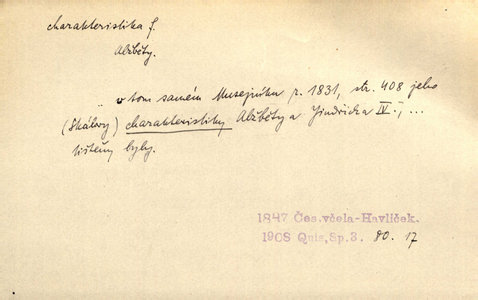 charakteristika f.
Alžběty.
"v tom samém Musejníku r. 1831, str. 408 jeho
(Skálovy) charakteristiky Alžběty a Jindřicha IV., ...
tištěny byly.
1847 Čes.včela-Havlíček.
1908 Quis,Sp.3. 80. 17